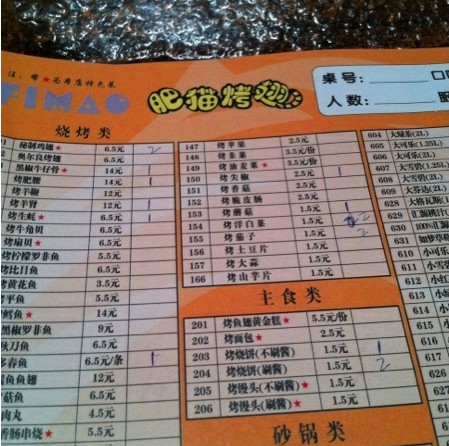 注：带★为本店特色菜
FIMAO
肥猫烤翅
桌号：
人数：
烧烤类
秘制鸡翅★ 6.5元 2
奥尔良烤翅 6.5元
黑椒牛仔骨★ 14元
烤肥腰 14元
烤羊鞭 12元
烤羊肾 12元 1
烤生蚝★ 6.5元 1
烤牛角贝 6.5元
烤扇贝★ 6.5元
烤柠檬罗非鱼 5.5元
烤比目鱼 5.5元
烤黄花鱼 3.5元
烤平鱼 5.5元
鳕鱼★ 14元
黑椒罗非鱼 9元
秋刀鱼 6.5元
多春鱼 6.5元/条 1
鱼翅 12元
菇鱼 6.5元
肉丸 4.5元
香肠串烧★ 5.5元
147 烤苹果 2.5元
148 烤韭菜 3.5元/份
149 烤油麦菜★ 3.5元/份
150 烤尖椒 2.5元 1
151 烤香菇 2.5元
152 烤脆皮肠 2.5元
153 烤蘑菇 1.5元 1
154 烤洋白菜 1.5元 2
155 烤茄子 1.5元 2
156 烤土豆片 1.5元
157 烤大蒜 1.5元
166 烤山芋片 1.5元
主食类
201 烤鱼翅黄金糕★ 5.5元/份
202 烤面包★ 2.5元
203 烤烧饼(不刷酱) 1.5元 1
204 烤烧饼(刷酱) 1.5元 2
205 烤馒头(不刷酱)★ 1.5元
206 烤馒头(刷酱)★ 1.5元
砂锅类
604 大绿茶(2L)
605 大可乐(1.25L)
606 大可乐(2L)
607 大雪碧(1.25L)
608 大雪碧(2L)
609 大芬达(2L)
628 大格瓦斯
629 汇源桃汁
630 100%汇源
631
639 小可乐
610 小可
611 小雪
612 小芬
640 小红
613 小
614
515
616
617
627
632
633